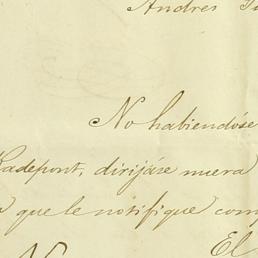 Andres
No habiendóse
Radepont, dirijáse nuera
que le notifique com
El